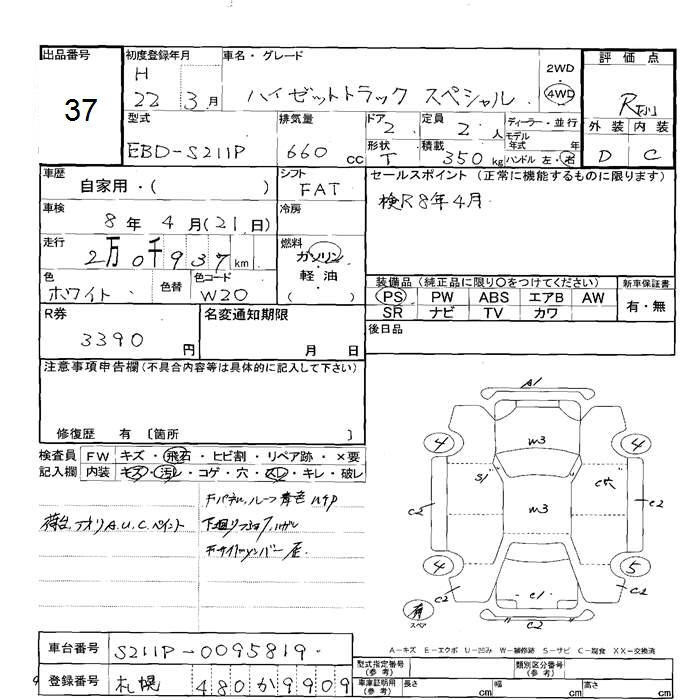 出品番号
37
初度登録年月
H
22 3月
車名・グレード
ハイゼットトラック スペシャル
2WD
・
4WD
評価点
外装 内装
D C
型式
EBD-S211P
排気量
660 cc
ドア
2
定員
2 人
ディーラー・並行
モデル
年式 年
形状
T
積載
350 kg
ハンドル 左・右
車歴
自家用・( )
シフト
FAT
セールスポイント (正常に機能するものに限ります)
検R8年4月
車検
8年 4月(21日)
冷房
走行
2万0千937km
燃料
ガソリン
・
軽油
( )
色
ホワイト
色替
色コード
W20
装備品 (純正品に限り○をつけてください)
PS PW ABS エアB AW
SR ナビ TV カワ
新車保証書
有・無
後日品
R券
3390円
名変通知期限
月 日
注意事項申告欄(不具合内容等は具体的に記入して下さい)
修復歴 有 〔箇所 〕
検査員
記入欄
FW キズ・飛石・ヒビ割・リペア跡・×要
内装 キズ・汚れ・コゲ・穴・スレ・キレ・破レ
荷台、アオリA.U.C.ペイント
A1
4 m3 4
S1
C2 m3 C2
4 5
C2 C1 C2
有
スペア
C2
A－キズ E－エクボ U－凹み W－補修跡 S－サビ C－腐食 XX－交換済
車台番号
S211P-0095819
登録番号
札幌 480か9909
型式指定番号
(参考)
類別区分番号
(参考)
車庫証明用
(参考)
長さ cm 幅 cm 高さ cm